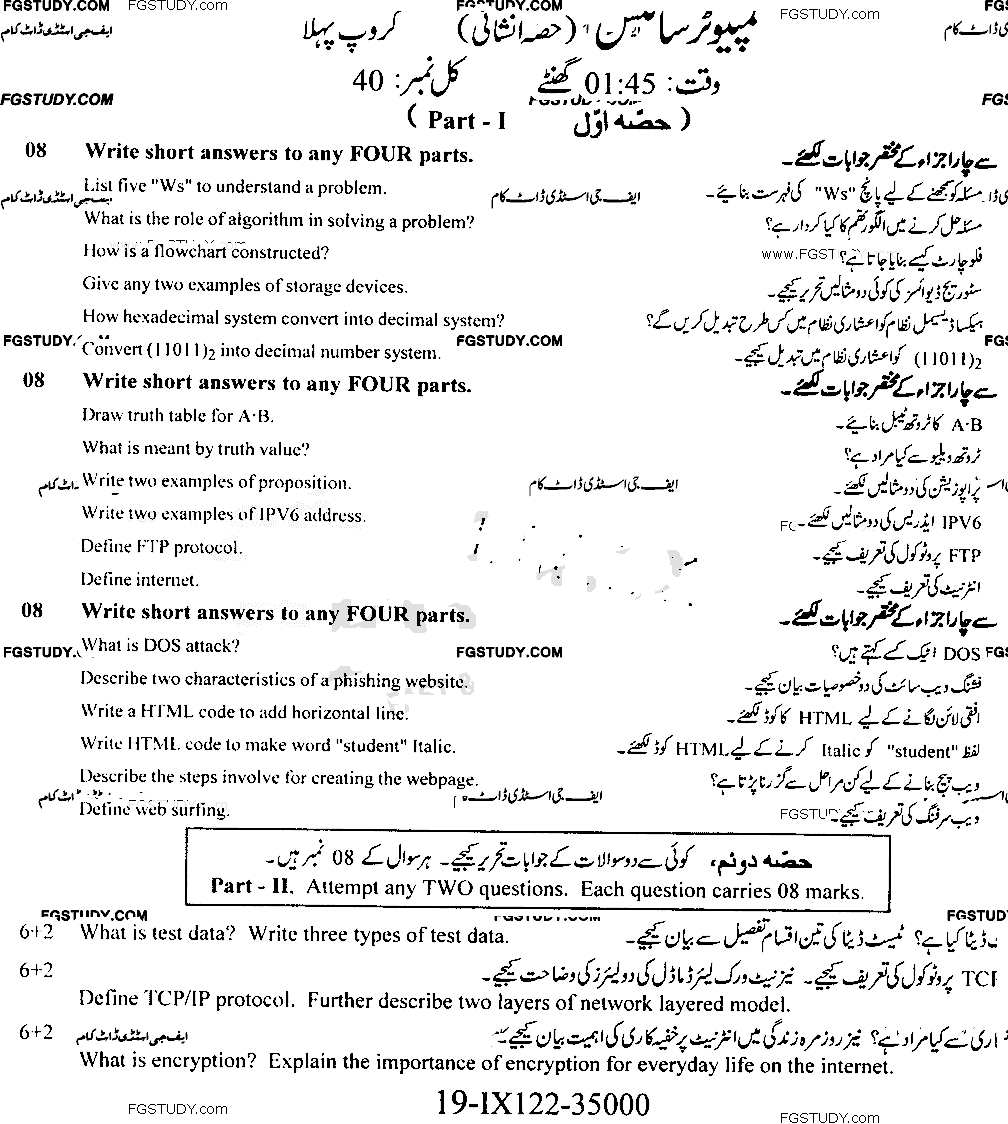 FGSTUDY.COM FGSTUDY.com FGSTUDY.COM FGSTUDY.com FGS
ایف جی اسٹڈی ڈاٹ کام کمپیوٹر سائنس (حصہ انشائی) گروپ پہلا ڈاٹ کام
وقت: 01:45 گھنٹے کل نمبر: 40
FGSTUDY.COM FGS
( Part - I حصّہ اوّل )
08 Write short answers to any FOUR parts. سے چار اجزاء کے مختصر جوابات لکھئے۔
List five "Ws" to understand a problem. مسئلہ کو سمجھنے کے لیے پانچ "Ws" کی فہرست بنائیے۔
ایف جی اسٹڈی ڈاٹ کام ایف جی اسٹڈی ڈاٹ کام
What is the role of algorithm in solving a problem? مسئلہ حل کرنے میں الگورتھم کا کیا کردار ہے؟
How is a flowchart constructed? www.FGST فلو چارٹ کیسے بنایا جاتا ہے؟
Give any two examples of storage devices. سٹوریج ڈیوائسز کی کوئی دو مثالیں تحریر کیجیے۔
How hexadecimal system convert into decimal system? ہیکسا ڈیسیمل نظام کو اعشاری نظام میں کس طرح تبدیل کریں گے؟
FGSTUDY. FGSTUDY.COM FGS
Convert (11011)₂ into decimal number system. (11011)₂ کو اعشاری نظام میں تبدیل کیجیے۔
08 Write short answers to any FOUR parts. سے چار اجزاء کے مختصر جوابات لکھئے۔
Draw truth table for A·B. A·B کا ٹروتھ ٹیبل بنائیے۔
What is meant by truth value? ٹروتھ ویلیو سے کیا مراد ہے؟
Write two examples of proposition. ایف جی اسٹڈی ڈاٹ کام پراپوزیشن کی دو مثالیں لکھئے۔
Write two examples of IPV6 address. IPV6 ایڈریس کی دو مثالیں لکھئے۔
Define FTP protocol. FTP پروٹوکول کی تعریف کیجیے۔
Define internet. انٹرنیٹ کی تعریف کیجیے۔
08 Write short answers to any FOUR parts. سے چار اجزاء کے مختصر جوابات لکھئے۔
What is DOS attack? DOS اٹیک کسے کہتے ہیں؟
FGSTUDY. FGSTUDY.COM FGS
Describe two characteristics of a phishing website. فشنگ ویب سائٹ کی دو خصوصیات بیان کیجیے۔
Write a HTML code to add horizontal line. افقی لائن لگانے کے لیے HTML کا کوڈ لکھئے۔
Write HTML code to make word "student" Italic. لفظ "student" کو Italic کرنے کے لیے HTML کوڈ لکھئے۔
Describe the steps involve for creating the webpage. ویب پیج بنانے کے لیے کن مراحل سے گزرنا پڑتا ہے؟
ایف جی اسٹڈی ڈاٹ کام
Define web surfing. FGSTUD ویب سرفنگ کی تعریف کیجیے۔
حصّہ دوئم، کوئی سے دو سوالات کے جوابات تحریر کیجیے۔ ہر سوال کے 08 نمبر ہیں۔
Part - II. Attempt any TWO questions. Each question carries 08 marks.
FGSTUDY.COM FGSTUDY.COM FGSTUD
6+2 What is test data? Write three types of test data. ڈیٹا کیا ہے؟ ٹیسٹ ڈیٹا کی تین اقسام تفصیل سے بیان کیجیے۔
6+2 پروٹوکول کی تعریف کیجیے۔ نیز نیٹ ورک لیئرڈ ماڈل کی دو لیئرز کی وضاحت کیجیے۔
Define TCP/IP protocol. Further describe two layers of network layered model.
6+2 ایف جی اسٹڈی ڈاٹ کام سے کیا مراد ہے؟ نیز روزمرہ زندگی میں انٹرنیٹ پر خفیہ کاری کی اہمیت بیان کیجیے۔
What is encryption? Explain the importance of encryption for everyday life on the internet.
FGSTUDY.com 19-IX122-35000 FGSTUDY.com